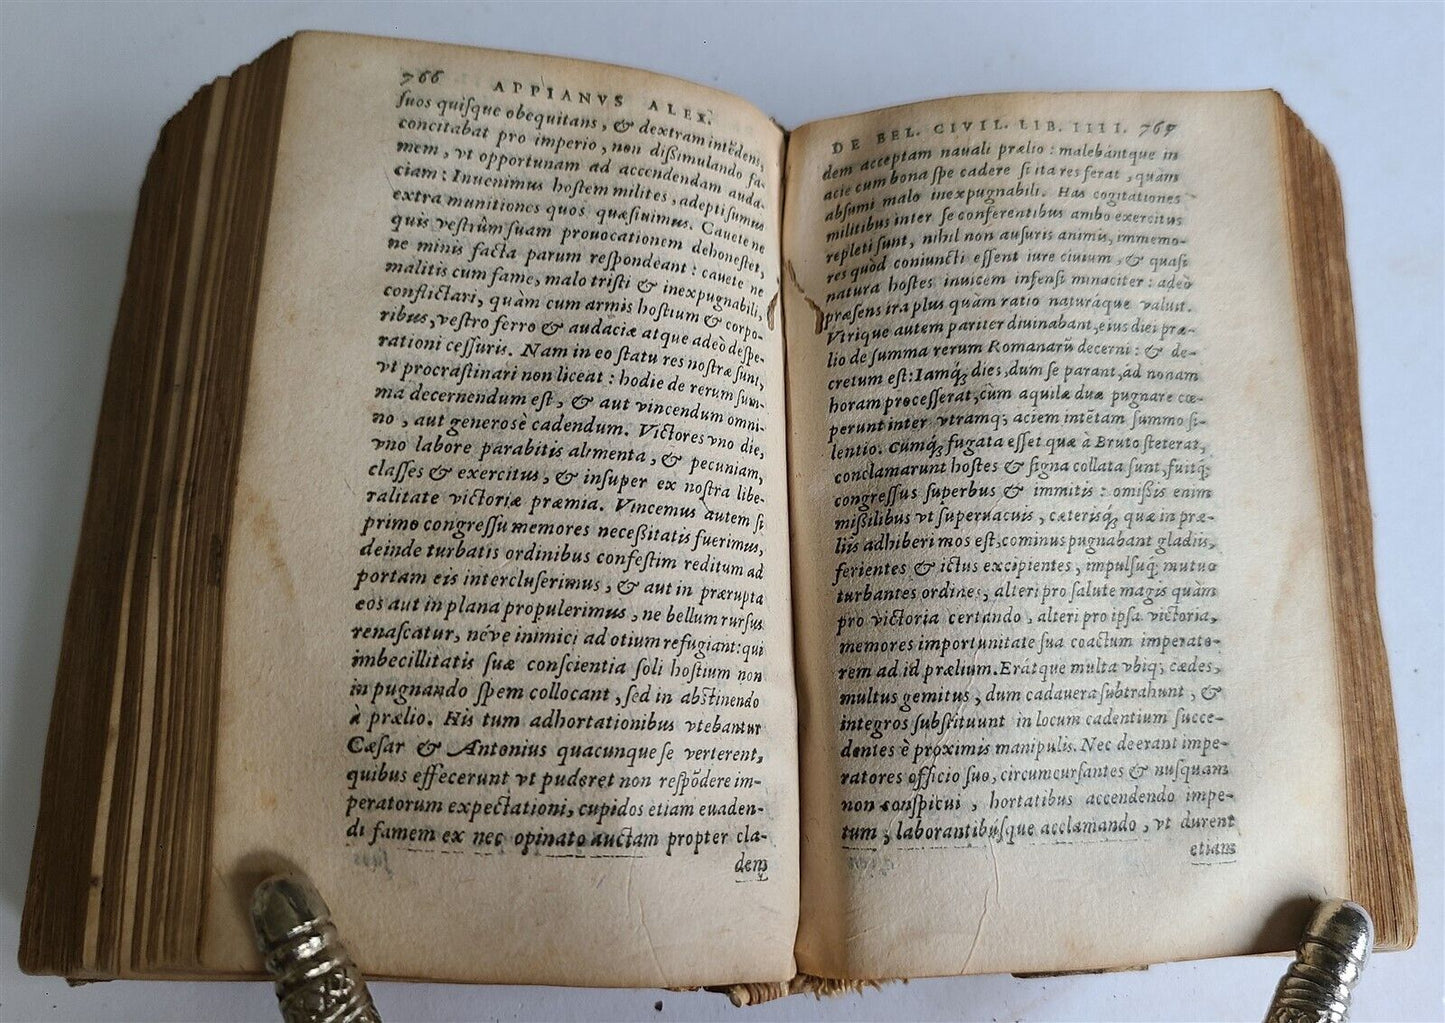 766 APPIANVS ALEX.
ſuos quiſque obequitans, & dextram intēdens,
concitabat pro imperio, non diſſimulando fa-
mem, vt opportunam ad accendendam auda-
ciam: Inuenimus hoſtem milites, adepti ſumus
extra munitiones quos quæſiuimus. Cauete ne
quis veſtrûm ſuam prouocationem dehoneſtet,
ne minis facta parum reſpondeant: cauete ne
malitis cum fame, malo triſti & inexpugnabili,
conflictari, quàm cum armis hoſtium & corpo-
ribus, veſtro ferro & audaciæ atque adeò deſpe-
rationi ceſſuris. Nam in eo ſtatu res noſtræ ſunt,
vt procraſtinari non liceat: hodie de rerum ſum-
ma decernendum eſt, & aut vincendum omni-
no, aut generosè cadendum. Victores vno die,
vno labore parabitis alimenta, & pecuniam,
claſſes & exercitus, & inſuper ex noſtra libe-
ralitate victoriæ præmia. Vincemus autem ſi
primo congreſſu memores neceſſitatis fuerimus,
deinde turbatis ordinibus confeſtim reditum ad
portam eis intercluſerimus, & aut in prærupta
eos aut in plana propulerimus, ne bellum rurſus
renaſcatur, néve inimici ad otium refugiant: qui
imbecillitatis ſuæ conſcientia ſoli hoſtium non
in pugnando ſpem collocant, ſed in abſtinendo
à prælio. His tum adhortationibus vtebantur
Cæſar & Antonius quacunque ſe verterent,
quibus effecerunt vt puderet non reſpōdere im-
peratorum expectationi, cupidos etiam euaden-
di famem ex nec opinato auctam propter cla-
dem
DE BEL. CIVIL. LIB. IIII. 767
dem acceptam nauali prælio: malebántque in
acie cum bona ſpe cadere ſi ita res ferat, quàm
abſumi malo inexpugnabili. Has cogitationes
militibus inter ſe conferentibus ambo exercitus
repleti ſunt, nihil non auſuris animis, immemo-
res quòd coniuncti eſſent iure ciuium, & quaſi
natura hoſtes inuicem infenſi minaciter: adeò
præſens ira plus quàm ratio naturáque valuit.
Vtrique autem pariter diuinabant, eius diei præ-
lio de ſumma rerum Romanarū decerni: & de-
cretum eſt: Iamq́; dies, dum ſe parant, ad nonam
horam proceſſerat, cùm aquilæ duæ pugnare cœ-
perunt inter vtramq; aciem intētam ſummo ſi-
lentio. Cumq́; fugata eſſet quæ à Bruto ſteterat,
conclamarunt hoſtes & ſigna collata ſunt, fuitq;
congreſſus ſuperbus & immitis: omiſſis enim
miſſilibus vt ſuperuacuis, cæterisq́; quæ in præ-
liis adhiberi mos eſt, cominus pugnabant gladiis,
ferientes & ictus excipientes, impulſuq; mutuo
turbantes ordines, alteri pro ſalute magis quàm
pro victoria certando, alteri pro ipſa victoria,
memores importunitate ſua coactum imperato-
rem ad id prælium. Erátque multa vbiq; cædes,
multus gemitus, dum cadauera ſubtrahunt, &
integros ſubſtituunt in locum cadentium ſucce-
dentes è proximis manipulis. Nec deerant impe-
ratores officio ſuo, circumcurſantes & nuſquam
non conſpicui, hortatibus accendendo impe-
tum, laborantibúſque acclamando, vt durent
etiam